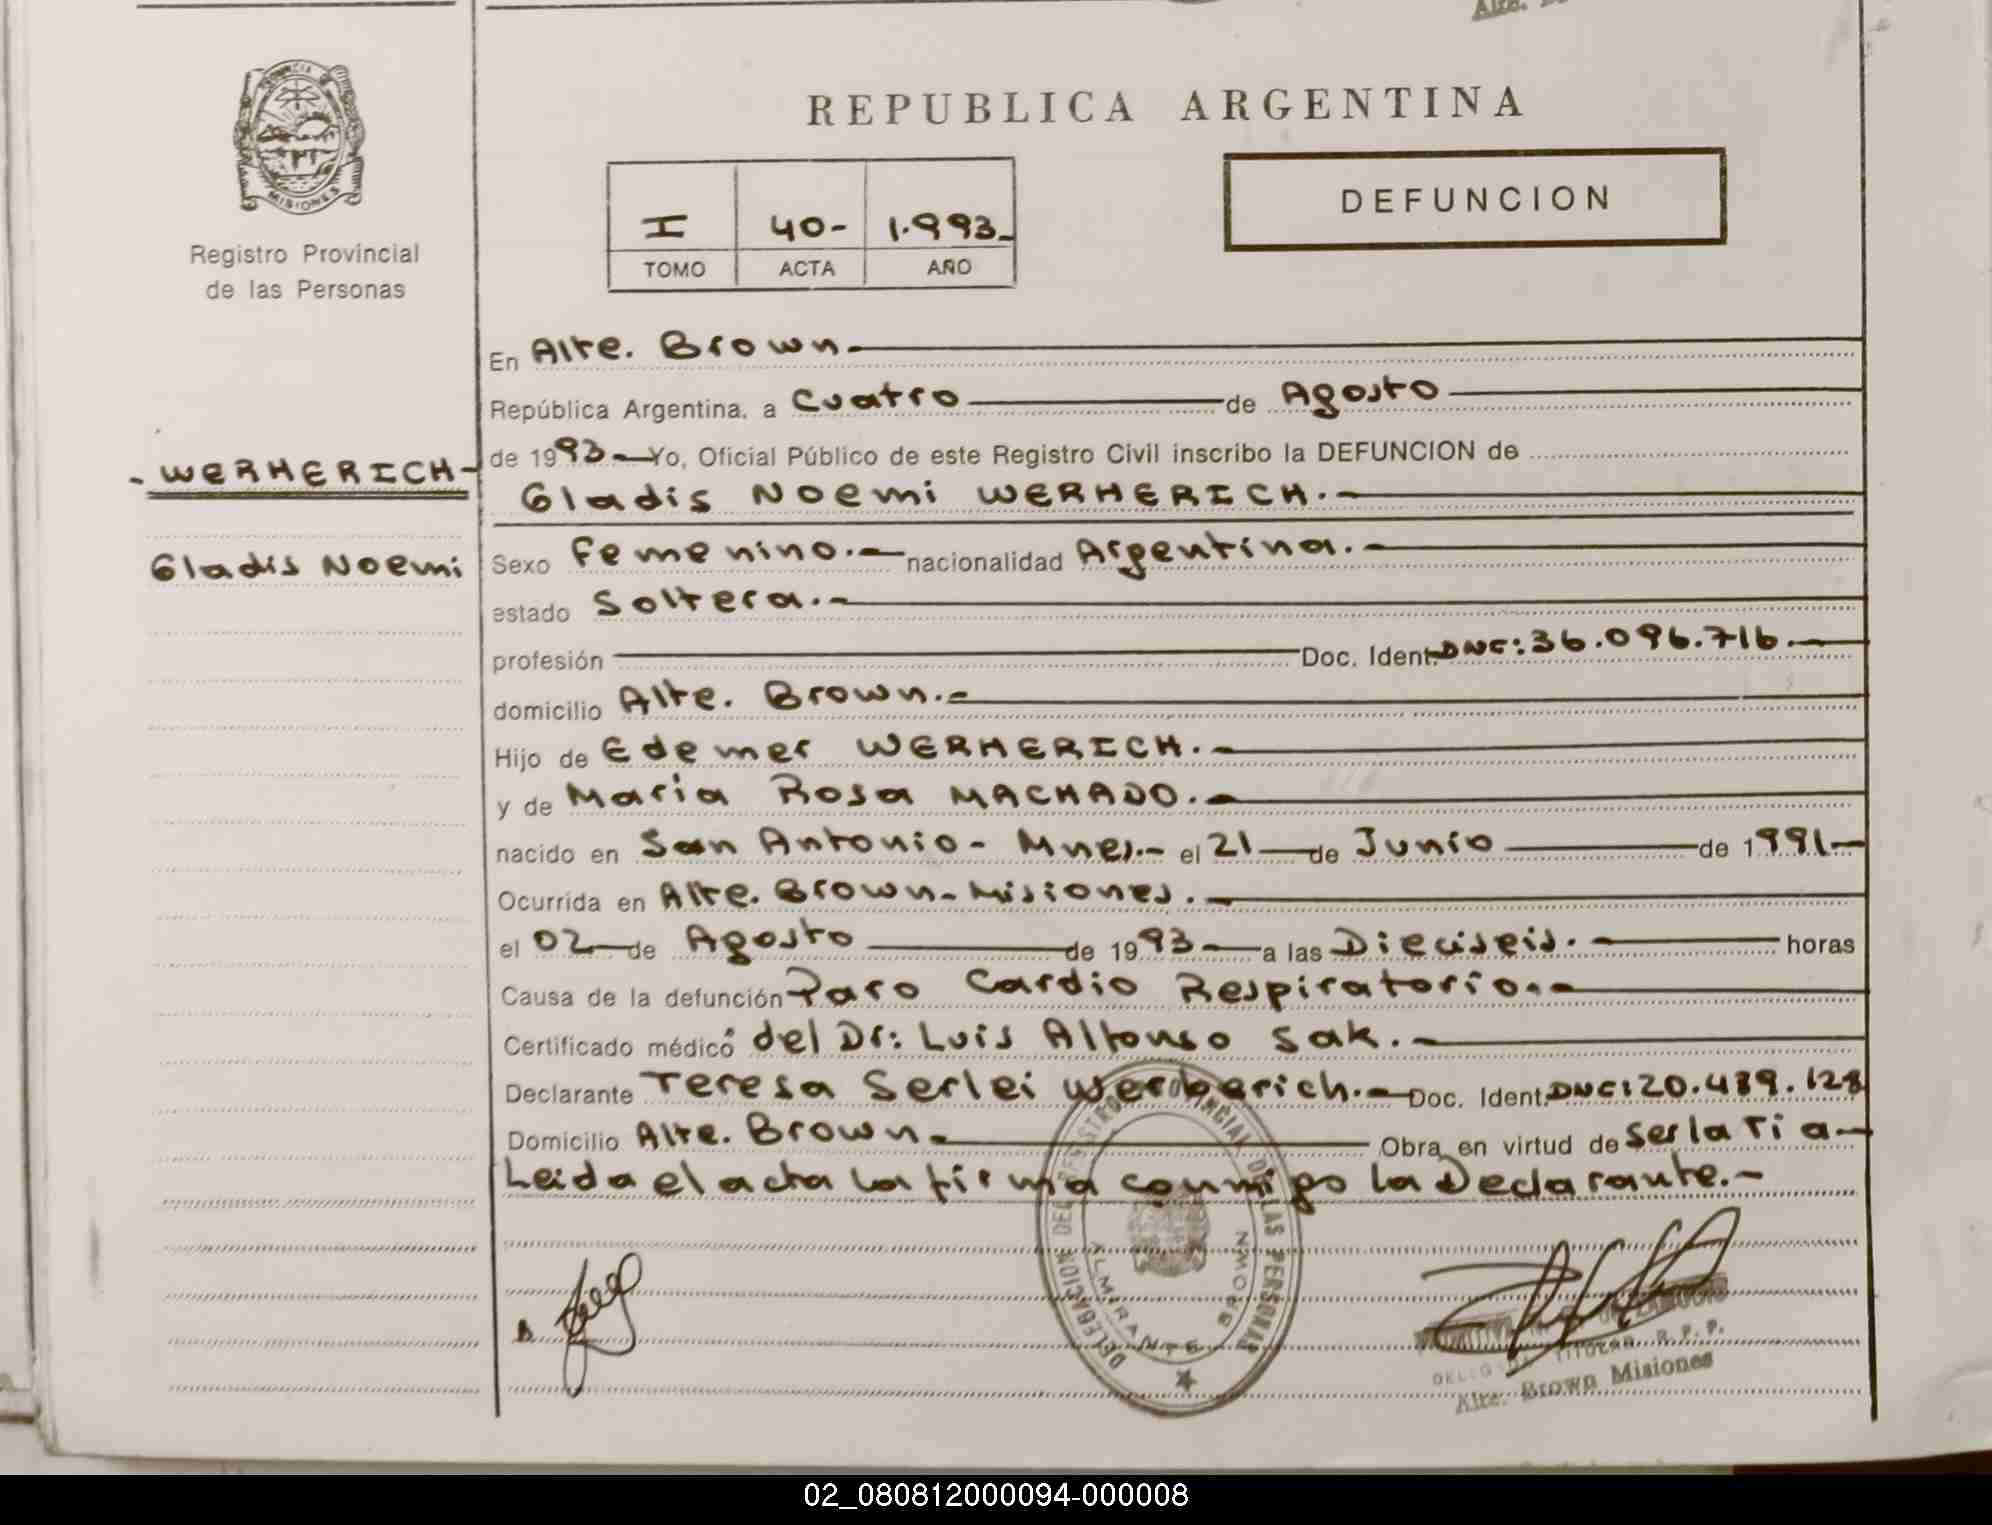 Alte.
PROVINCIA
MISIONES
Registro Provincial
de las Personas
REPUBLICA ARGENTINA
I 40- 1.993-
TOMO ACTA AÑO
DEFUNCION
En Alte. Brown.-
República Argentina, a Cuatro de Agosto
de 1993 Yo, Oficial Público de este Registro Civil inscribo la DEFUNCION de
- WERHERICH -
Gladis Noemi WERHERICH.-
Gladis Noemi
Sexo Femenino.- nacionalidad Argentina.-
estado Soltera.-
profesión Doc. Ident. DNI: 36.096.716.-
domicilio Alte. Brown.-
Hijo de Edemer WERHERICH.-
y de Maria Rosa MACHADO.-
nacido en San Antonio - Mnes.- el 21 de Junio de 1991-
Ocurrida en Alte. Brown - Misiones.-
el 02 de Agosto de 1993 a las Dieciseis.- horas
Causa de la defunción Paro Cardio Respiratorio.-
Certificado médico del Dr: Luis Alfonso Sak.-
Declarante Teresa Serlei Werberich.- Doc. Ident. DNI: 20.489.128
Domicilio Alte. Brown.- Obra en virtud de ser la Tia-
Leida el acta la firma conmigo la Declarante.-
DELEGACION DEL REGISTRO PROVINCIAL DE LAS PERSONAS
ALMIRANTE BROWN
TITULAR R.P.P.
Alte. Brown Misiones
02_080812000094-000008